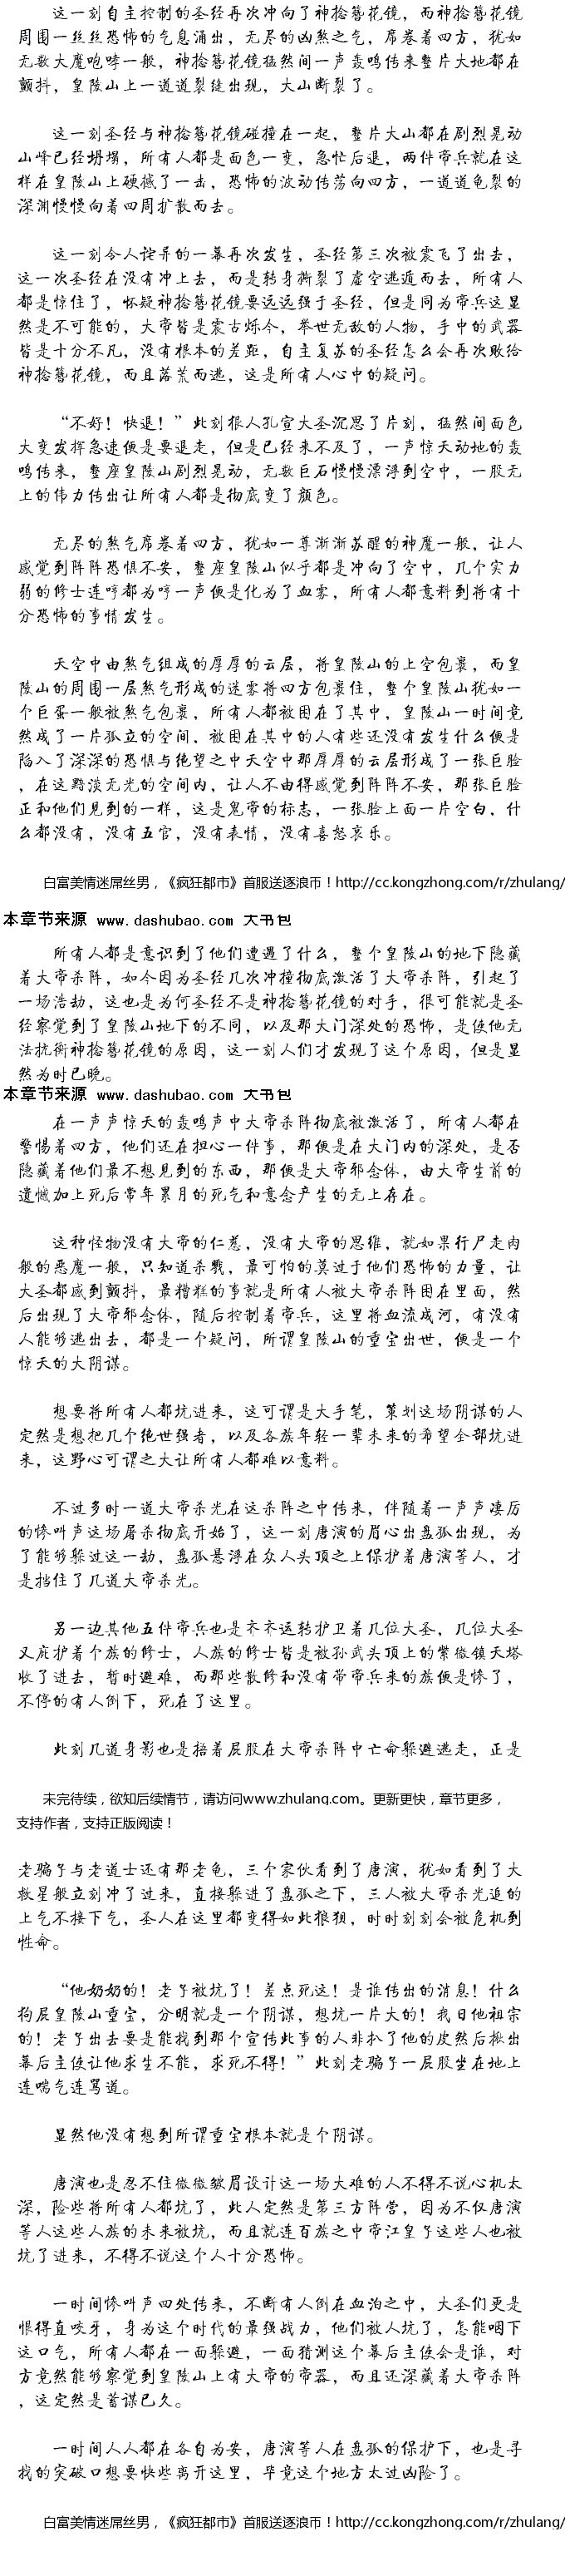 这一刻自主控制的圣经再次冲向了神捻簪花镜，而神捻簪花镜
周围一丝丝恐怖的气息涌出，无尽的凶煞之气，席卷着四方，犹如
无歌大魔咆哮一般，神捻簪花镜猛然间一声轰鸣传来整片大地都在
颤抖，皇陵山上一道道裂缝出现，大山断裂了。
这一刻圣经与神捻簪花镜碰撞在一起，整片大山都在剧烈晃动
山峰已经坍塌，所有人都是面色一变，急忙后退，两件帝兵就在这
样在皇陵山上硬撼了一击，恐怖的波动传荡向四方，一道道龟裂的
深渊慢慢向着四周扩散而去。
这一刻令人诧异的一幕再次发生，圣经第三次被震飞了出去，
这一次圣经在没有冲上去，而是转身撕裂了虚空逃遁而去，所有人
都是惊住了，怀疑神捻簪花镜要远远强于圣经，但是同为帝兵这显
然是不可能的，大帝皆是震古烁今，举世无敌的人物，手中的武器
皆是十分不凡，没有根本的差距，自主复苏的圣经怎么会再次败给
神捻簪花镜，而且落荒而逃，这是所有人心中的疑问。
“不好！快退！”此刻狠人孔宣大圣沉思了片刻，猛然间面色
大变发挥急速便是要退走，但是已经来不及了，一声惊天动地的轰
鸣传来，整座皇陵山剧烈晃动，无数巨石慢慢漂浮到空中，一股无
上的伟力传出让所有人都是彻底变了颜色。
无尽的煞气席卷着四方，犹如一尊渐渐苏醒的神魔一般，让人
感觉到阵阵恐惧不安，整座皇陵山似乎都是冲向了空中，几个实力
弱的修士连哼都为哼一声便是化为了血雾，所有人都意料到将有十
分恐怖的事情发生。
天空中由煞气组成的厚厚的云层，将皇陵山的上空包裹，而皇
陵山的周围一层煞气形成的迷雾将四方包裹住，整个皇陵山犹如一
个巨蛋一般被煞气包裹，所有人都被困在了其中，皇陵山一时间竟
然成了一片孤立的空间，被困在其中的人有些还没有发生什么便是
陷入了深深的恐惧与绝望之中天空中那厚厚的云层形成了一张巨脸
，在这黯淡无光的空间内，让人不由得感觉到阵阵不安，那张巨脸
正和他们见到的一样，这是鬼帝的标志，一张脸上面一片空白，什
么都没有，没有五官，没有表情，没有喜怒哀乐。
白富美情迷屌丝男，《疯狂都市》首服送逐浪币！http://cc.kongzhong.com/r/zhulang/
本章节来源 www.dashubao.com 大书包
所有人都是意识到了他们遭遇了什么，整个皇陵山的地下隐藏
着大帝杀阵，如今因为圣经几次冲撞彻底激活了大帝杀阵，引起了
一场浩劫，这也是为何圣经不是神捻簪花镜的对手，很可能就是圣
经察觉到了皇陵山地下的不同，以及那大门深处的恐怖，是使他无
法抗衡神捻簪花镜的原因，这一刻人们才发现了这个原因，但是显
然为时已晚。
本章节来源 www.dashubao.com 大书包
在一声声惊天的轰鸣声中大帝杀阵彻底被激活了，所有人都在
警惕着四方，他们还在担心一件事，那便是在大门内的深处，是否
隐藏着他们最不想见到的东西，那便是大帝邪念体，由大帝生前的
遗憾加上死后常年累月的死气和意念产生的无上存在。
这种怪物没有大帝的仁慈，没有大帝的思维，就如果行尸走肉
般的恶魔一般，只知道杀戮，最可怕的莫过于他们恐怖的力量，让
大圣都感到颤抖，最糟糕的事就是所有人被大帝杀阵困在里面，然
后出现了大帝邪念体，随后控制着帝兵，这里将血流成河，有没有
人能够逃出去，都是一个疑问，所谓皇陵山的重宝出世，便是一个
惊天的大阴谋。
想要将所有人都坑进来，这可谓是大手笔，策划这场阴谋的人
定然是想把几个绝世强者，以及各族年轻一辈未来的希望全部坑进
来，这野心可谓之大让所有人都难以意料。
不过多时一道大帝杀光在这杀阵之中传来，伴随着一声声凄厉
的惨叫声这场屠杀彻底开始了，这一刻唐演的眉心出盘孤出现，为
了能够躲过这一劫，盘孤悬浮在众人头顶之上保护着唐演等人，才
是挡住了几道大帝杀光。
另一边其他五件帝兵也是齐齐运转护卫着几位大圣，几位大圣
又庇护着个族的修士，人族的修士皆是被孙武头顶上的紫微镇天塔
收了进去，暂时避难，而那些散修和没有带帝兵来的族便是惨了，
不停的有人倒下，死在了这里。
此刻几道身影也是捂着屁股在大帝杀阵中亡命躲避逃走，正是
未完待续，欲知后续情节，请访问www.zhulang.com。更新更快，章节更多，
支持作者，支持正版阅读！
老骗子与老道士还有那老龟，三个家伙看到了唐演，犹如看到了大
救星般立刻冲了过来，直接躲进了盘孤之下，三人被大帝杀光追的
上气不接下气，圣人在这里都变得如此狼狈，时时刻刻会被危机到
性命。
“他奶奶的！老子被坑了！差点死这！是谁传出的消息！什么
狗屁皇陵山重宝，分明就是一个阴谋，想坑一片大的！我日他祖宗
的！老子出去要是能找到那个宣传此事的人非扒了他的皮然后揪出
幕后主使让他求生不能，求死不得！”此刻老骗子一屁股坐在地上
连喘气连骂道。
显然他没有想到所谓重宝根本就是个阴谋。
唐演也是忍不住微微皱眉设计这一场大难的人不得不说心机太
深，险些将所有人都坑了，此人定然是第三方阵营，因为不仅唐演
等人这些人族的未来被坑，而且就连百族之中帝江皇子这些人也被
坑了进来，不得不说这个人十分恐怖。
一时间惨叫声四处传来，不断有人倒在血泊之中，大圣们更是
恨得直咬牙，身为这个时代的最强战力，他们被人坑了，怎能咽下
这口气，所有人都在一面躲避，一面猜测这个幕后主使会是谁，对
方竟然能够察觉到皇陵山上有大帝的帝器，而且还深藏着大帝杀阵
，这定然是蓄谋已久。
一时间人人都在各自为安，唐演等人在盘孤的保护下，也是寻
找的突破口想要快些离开这里，毕竟这个地方太过凶险了。
白富美情迷屌丝男，《疯狂都市》首服送逐浪币！http://cc.kongzhong.com/r/zhulang/